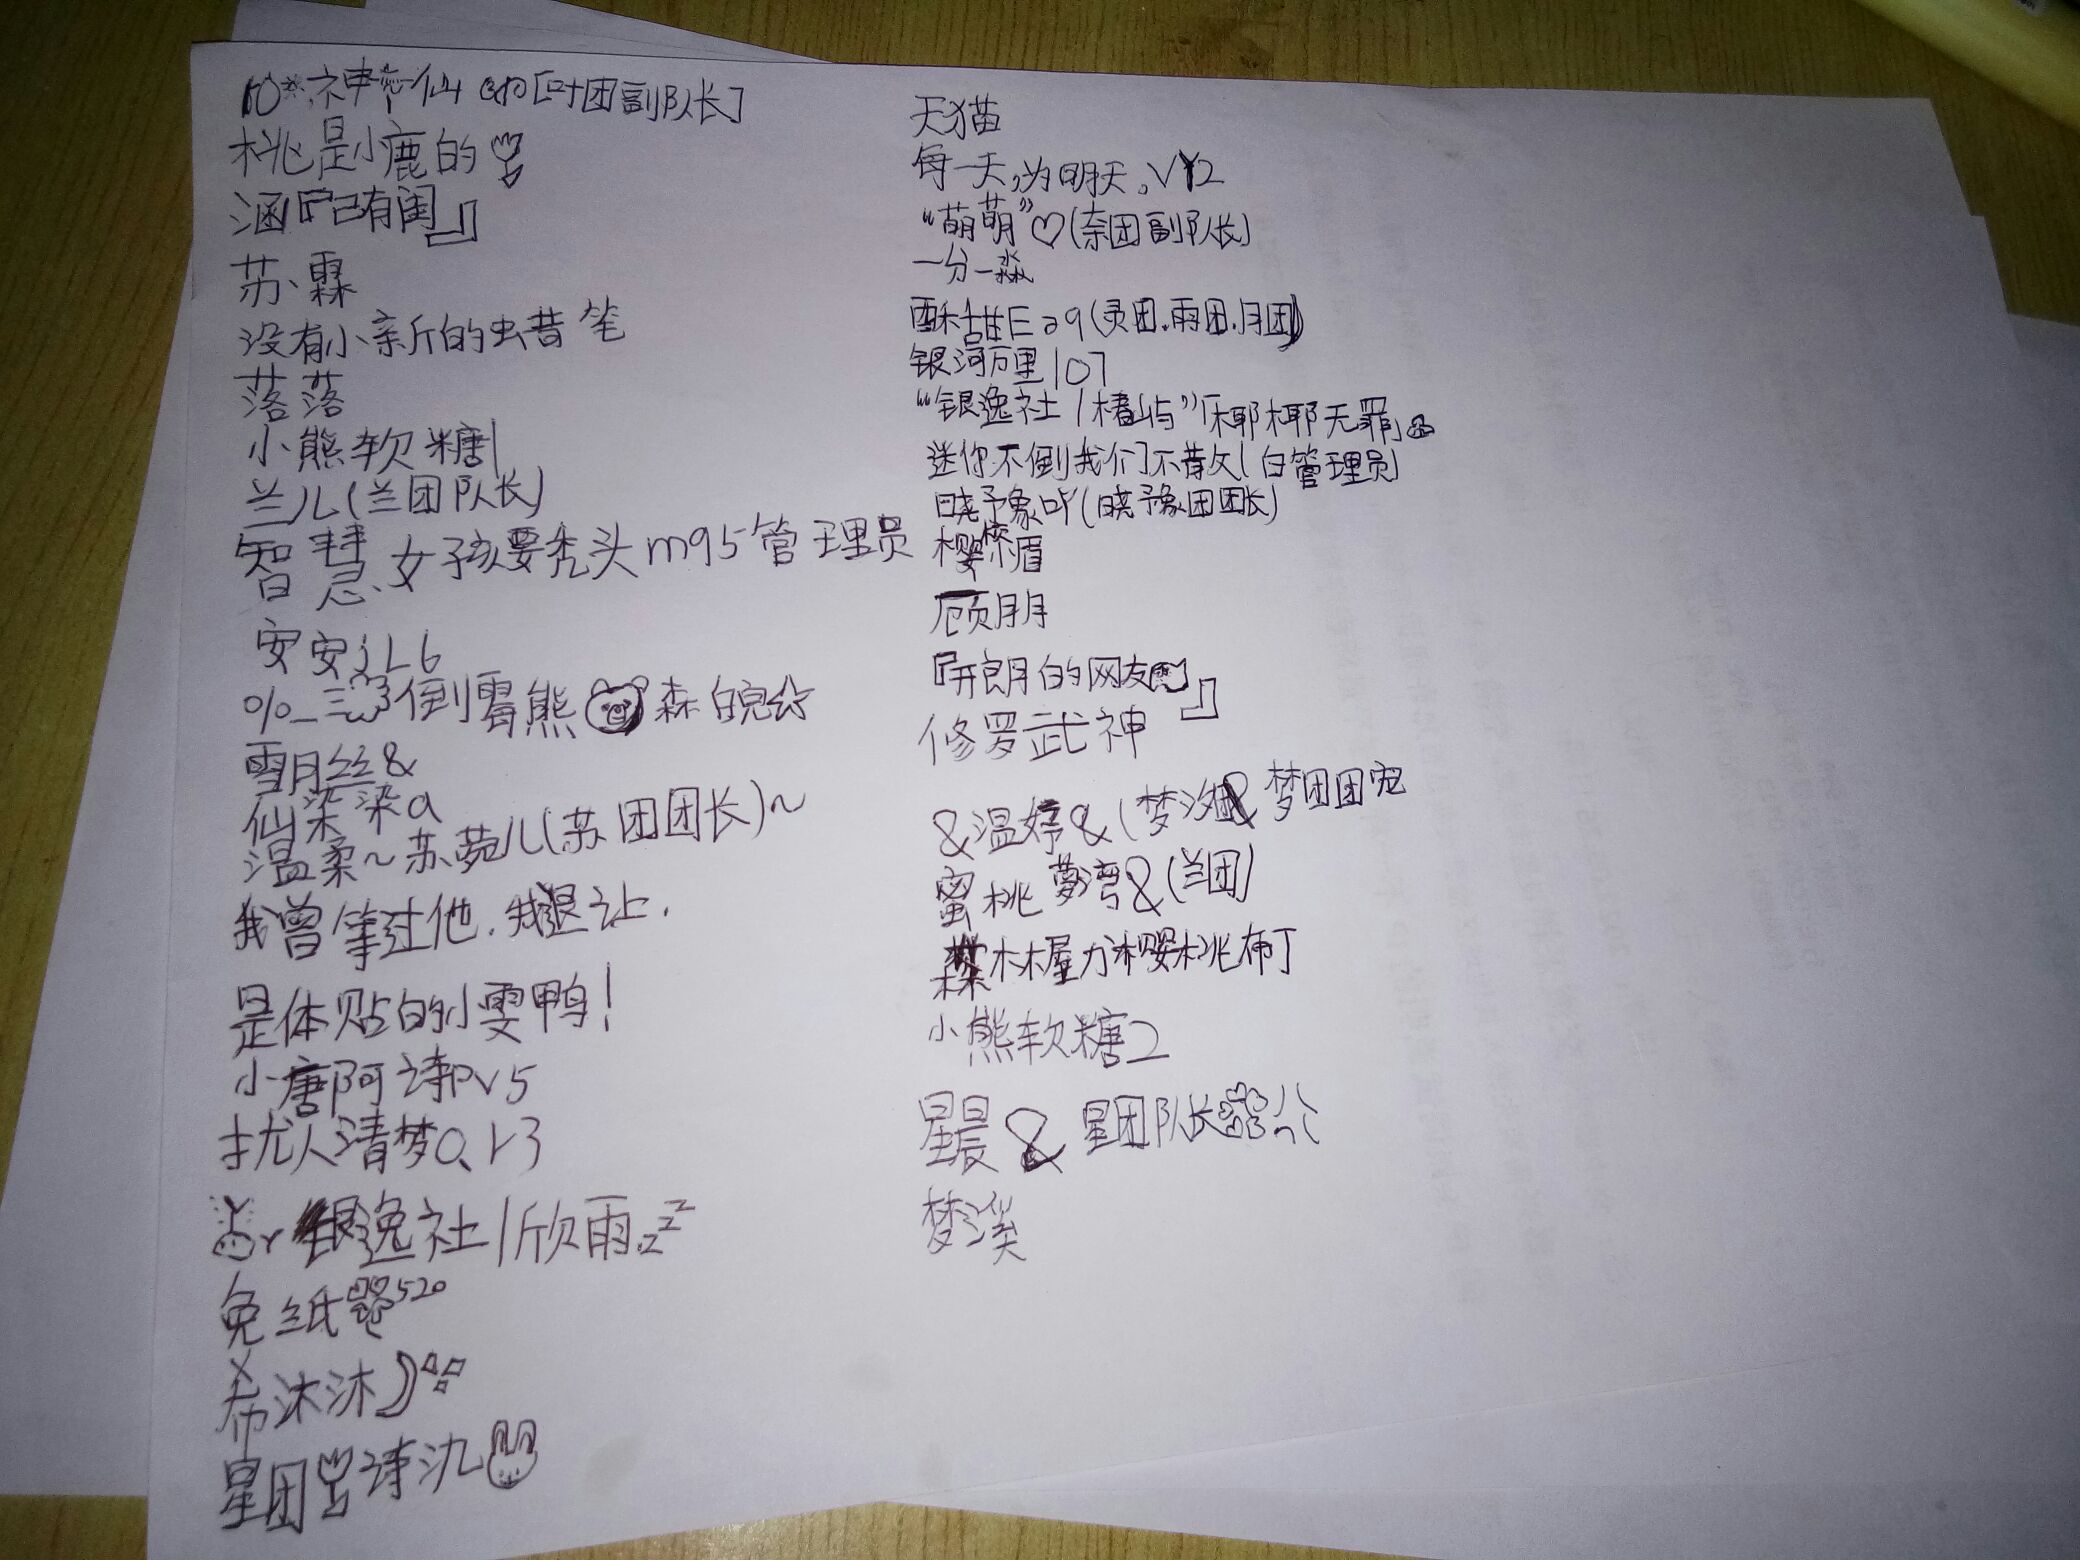 神仙 [叶团副队长]
桃是小鹿的
涵『已有闺』
苏霖
没有小新的蜡笔
落落
小熊软糖
兰儿(兰团队长)
智慧女孩要秃头m95管理员
安安jL6
%_三 倒霉熊 森皖☆
雪月丝&
仙染染a
温柔~苏菀儿(苏团团长)~
我曾等过他.我退让.
是体贴的小雯鸭!
小唐阿诗pv5
扰人清梦0、r3
银逸社/欣雨zzz
兔纸 520
希沐沐
星团 诗氿
天猫
每一天,为明天。
“萌萌”♡(奈团副队长)
一分一淼
酥甜Eaq(灵团.雨团.月团)
银河万里107
“银逸社/楮屿”「椰椰无罪」
迷你不倒我们不散(白管理员)
晓予象吖(晓予象团团长)
樱
顾朋
『开朗的网友』
修罗武神
&温婷&(梦汐 & 梦团团宠
蜜桃夢湾&(兰团)
木木屋 力 樱桃布丁
小熊软糖2
星晨&星团队长
梦溪